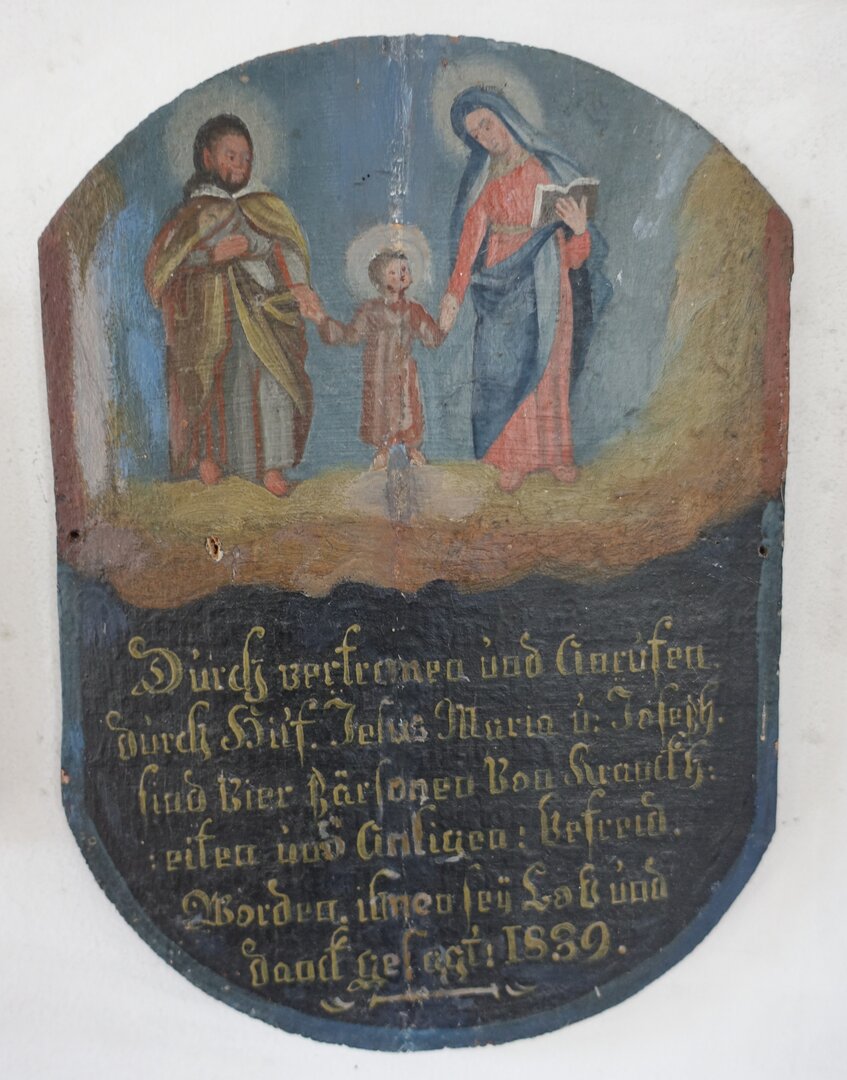 Durch vertrauen und Anrufen.
durch Hilf. Jesus Maria u: Joseph.
sind Vier Pärsonen Von Kranckh:
:eiten und Anligen: befreid.
Worden. ihnen seÿ Lob und
danck gesagt: 1839.